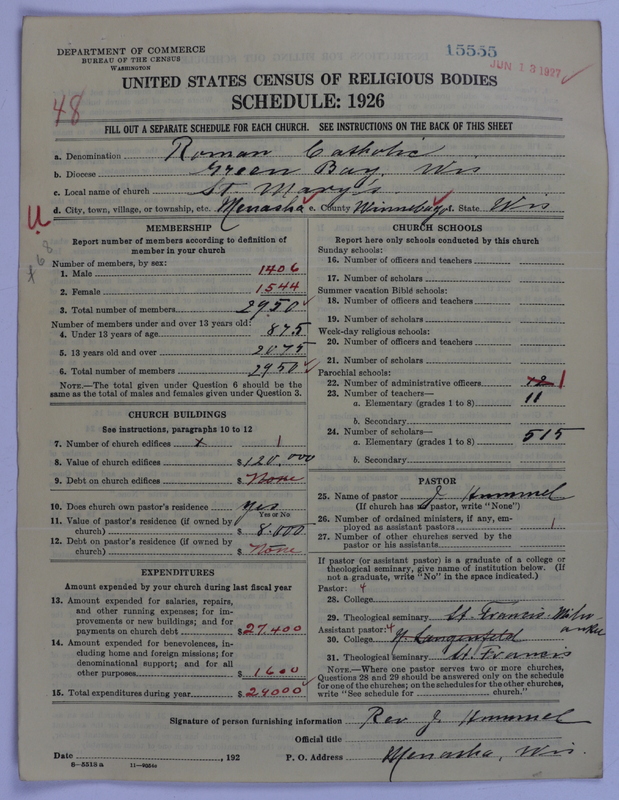 DEPARTMENT OF COMMERCE
BUREAU OF THE CENSUS
WASHINGTON
15555
JUN 13 1927
UNITED STATES CENSUS OF RELIGIOUS BODIES
48
SCHEDULE: 1926
FILL OUT A SEPARATE SCHEDULE FOR EACH CHURCH. SEE INSTRUCTIONS ON THE BACK OF THIS SHEET
a. Denomination Roman Catholic
b. Diocese Green Bay, Wis
c. Local name of church St Mary's
d. City, town, village, or township, etc. Menasha e. County Winnebago f. State Wis
U
MEMBERSHIP
Report number of members according to definition of
member in your church
Number of members, by sex:
1. Male 1406
2. Female 1544
3. Total number of members 2950
Number of members under and over 13 years old:
4. Under 13 years of age 875
5. 13 years old and over 2075
6. Total number of members 2950
NOTE.—The total given under Question 6 should be
same as the total of males and females given under Question 3.
CHURCH BUILDINGS
See instructions, paragraphs 10 to 12
7. Number of church edifices x 1
8. Value of church edifices $120,000
9. Debt on church edifices $None
10. Does church own pastor's residence yes
Yes or No
11. Value of pastor's residence (if owned by
church) $8.000
12. Debt on pastor's residence (if owned by
church) $None
EXPENDITURES
Amount expended by your church during last fiscal year
13. Amount expended for salaries, repairs,
and other running expenses; for im-
provements or new buildings; and for
payments on church debt $27.400
14. Amount expended for benevolences, in-
cluding home and foreign missions; for
denominational support; and for all
other purposes $1600
15. Total expenditures during year $29000
CHURCH SCHOOLS
Report here only schools conducted by this church
Sunday schools:
16. Number of officers and teachers
17. Number of scholars
Summer vacation Bible schools:
18. Number of officers and teachers
19. Number of scholars
Week-day religious schools:
20. Number of officers and teachers
21. Number of scholars
Parochial schools:
22. Number of administrative officers 12 1
23. Number of teachers—
a. Elementary (grades 1 to 8) 11
b. Secondary
24. Number of scholars—
a. Elementary (grades 1 to 8) 515
b. Secondary
PASTOR
25. Name of pastor J Hummel
(If church has no pastor, write "None")
26. Number of ordained ministers, if any, em-
ployed as assistant pastors 1
27. Number of other churches served by the
pastor or his assistants
If pastor (or assistant pastor) is a graduate of a college or
theological seminary, give name of institution below. (If
not a graduate, write "No" in the space indicated.)
Pastor: 4
28. College
29. Theological seminary St. Francis. Milw
aukee
Assistant pastor: 4
30. College H Langenfeld
31. Theological seminary St. Francis
NOTE.—Where one pastor serves two or more churches,
Questions 28 and 29 should be answered only on the schedule
for one of the churches; on the schedules for the other churches,
write "See schedule for church."
Signature of person furnishing information Rev J Hummel
Official title
Date , 192 P. O. Address Menasha, Wis.
8—5518a 11—9554